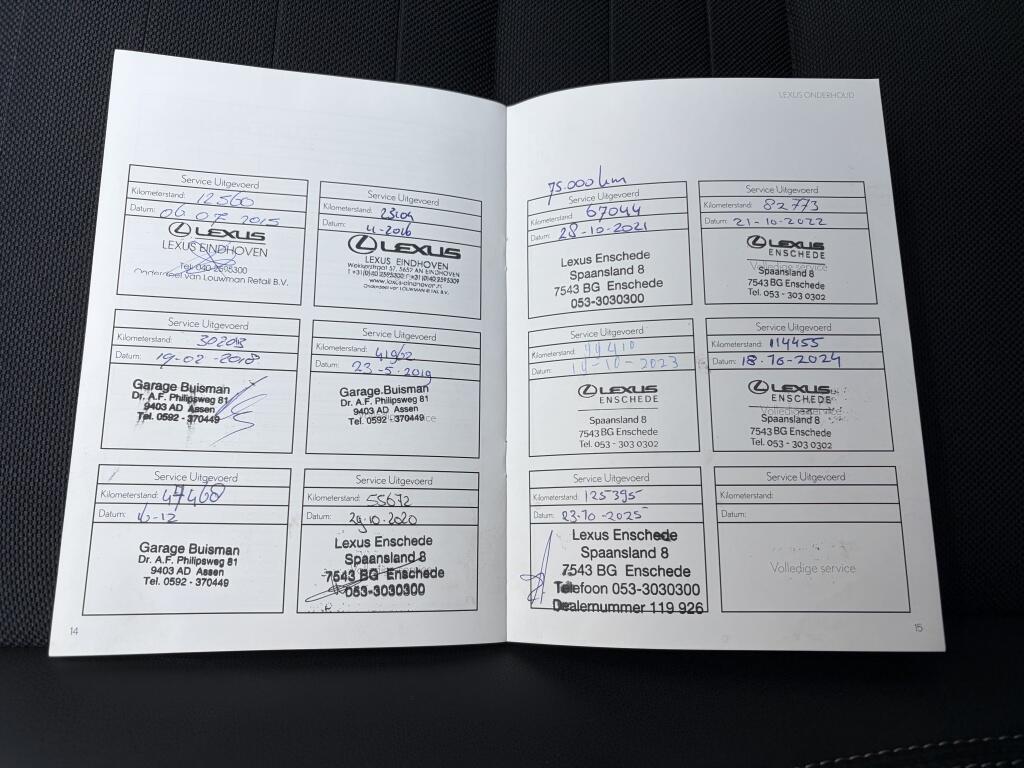 Service Uitgevoerd
Kilometerstand: 12560
Datum: 06 07 2015
LEXUS
LEXUS EINDHOVEN
Tel. 040 2595300
Onderdeel van Louwman Retail B.V.
Service Uitgevoerd
Kilometerstand:
Datum:
LEXUS
LEXUS EINDHOVEN
Wekkerstraat 57, 5652 AN EINDHOVEN
www.lexus-eindhoven.nl
Service Uitgevoerd
Kilometerstand:
Datum: 19-02-2018
Garage Buisman
Dr. A.F. Philipsweg 81
9403 AD Assen
Tel. 0592 - 370449
Service Uitgevoerd
Kilometerstand:
Datum: 23-5-2019
Garage Buisman
Dr. A.F. Philipsweg 81
9403 AD Assen
Tel. 0592 - 370449
Service Uitgevoerd
Kilometerstand: 47468
Datum:
Garage Buisman
Dr. A.F. Philipsweg 81
9403 AD Assen
Tel. 0592 - 370449
Service Uitgevoerd
Kilometerstand: 55672
Datum: 29.10.2020
Lexus Enschede
Spaansland 8
7543 BG Enschede
053-3030300
14
LEXUS ONDERHOUD
75.000 km
Service Uitgevoerd
Kilometerstand: 67044
Datum: 28-10-2021
Lexus Enschede
Spaansland 8
7543 BG Enschede
053-3030300
Service Uitgevoerd
Kilometerstand: 82773
Datum: 21-10-2022
LEXUS
ENSCHEDE
Volledige service
Spaansland 8
7543 BG Enschede
Tel. 053 - 303 0302
Service Uitgevoerd
Kilometerstand:
Datum:
LEXUS
ENSCHEDE
Spaansland 8
7543 BG Enschede
Tel. 053 - 303 0302
Service Uitgevoerd
Kilometerstand: 114455
Datum: 18-10-2024
LEXUS
ENSCHEDE
Volledige service
Spaansland 8
7543 BG Enschede
Tel. 053 - 303 0302
Service Uitgevoerd
Kilometerstand: 125395
Datum: 23-10-2025
Lexus Enschede
Spaansland 8
7543 BG Enschede
Telefoon 053-3030300
Dealernummer 119 926
Service Uitgevoerd
Kilometerstand:
Datum:
Volledige service
15